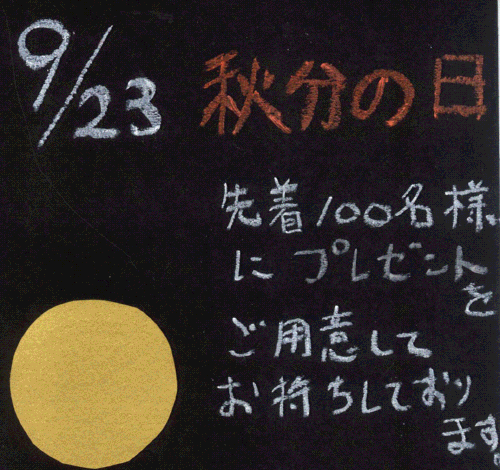 9/23 秋分の日
先着100名様
にプレゼント
を
ご用意して
お持ちしており
ます。